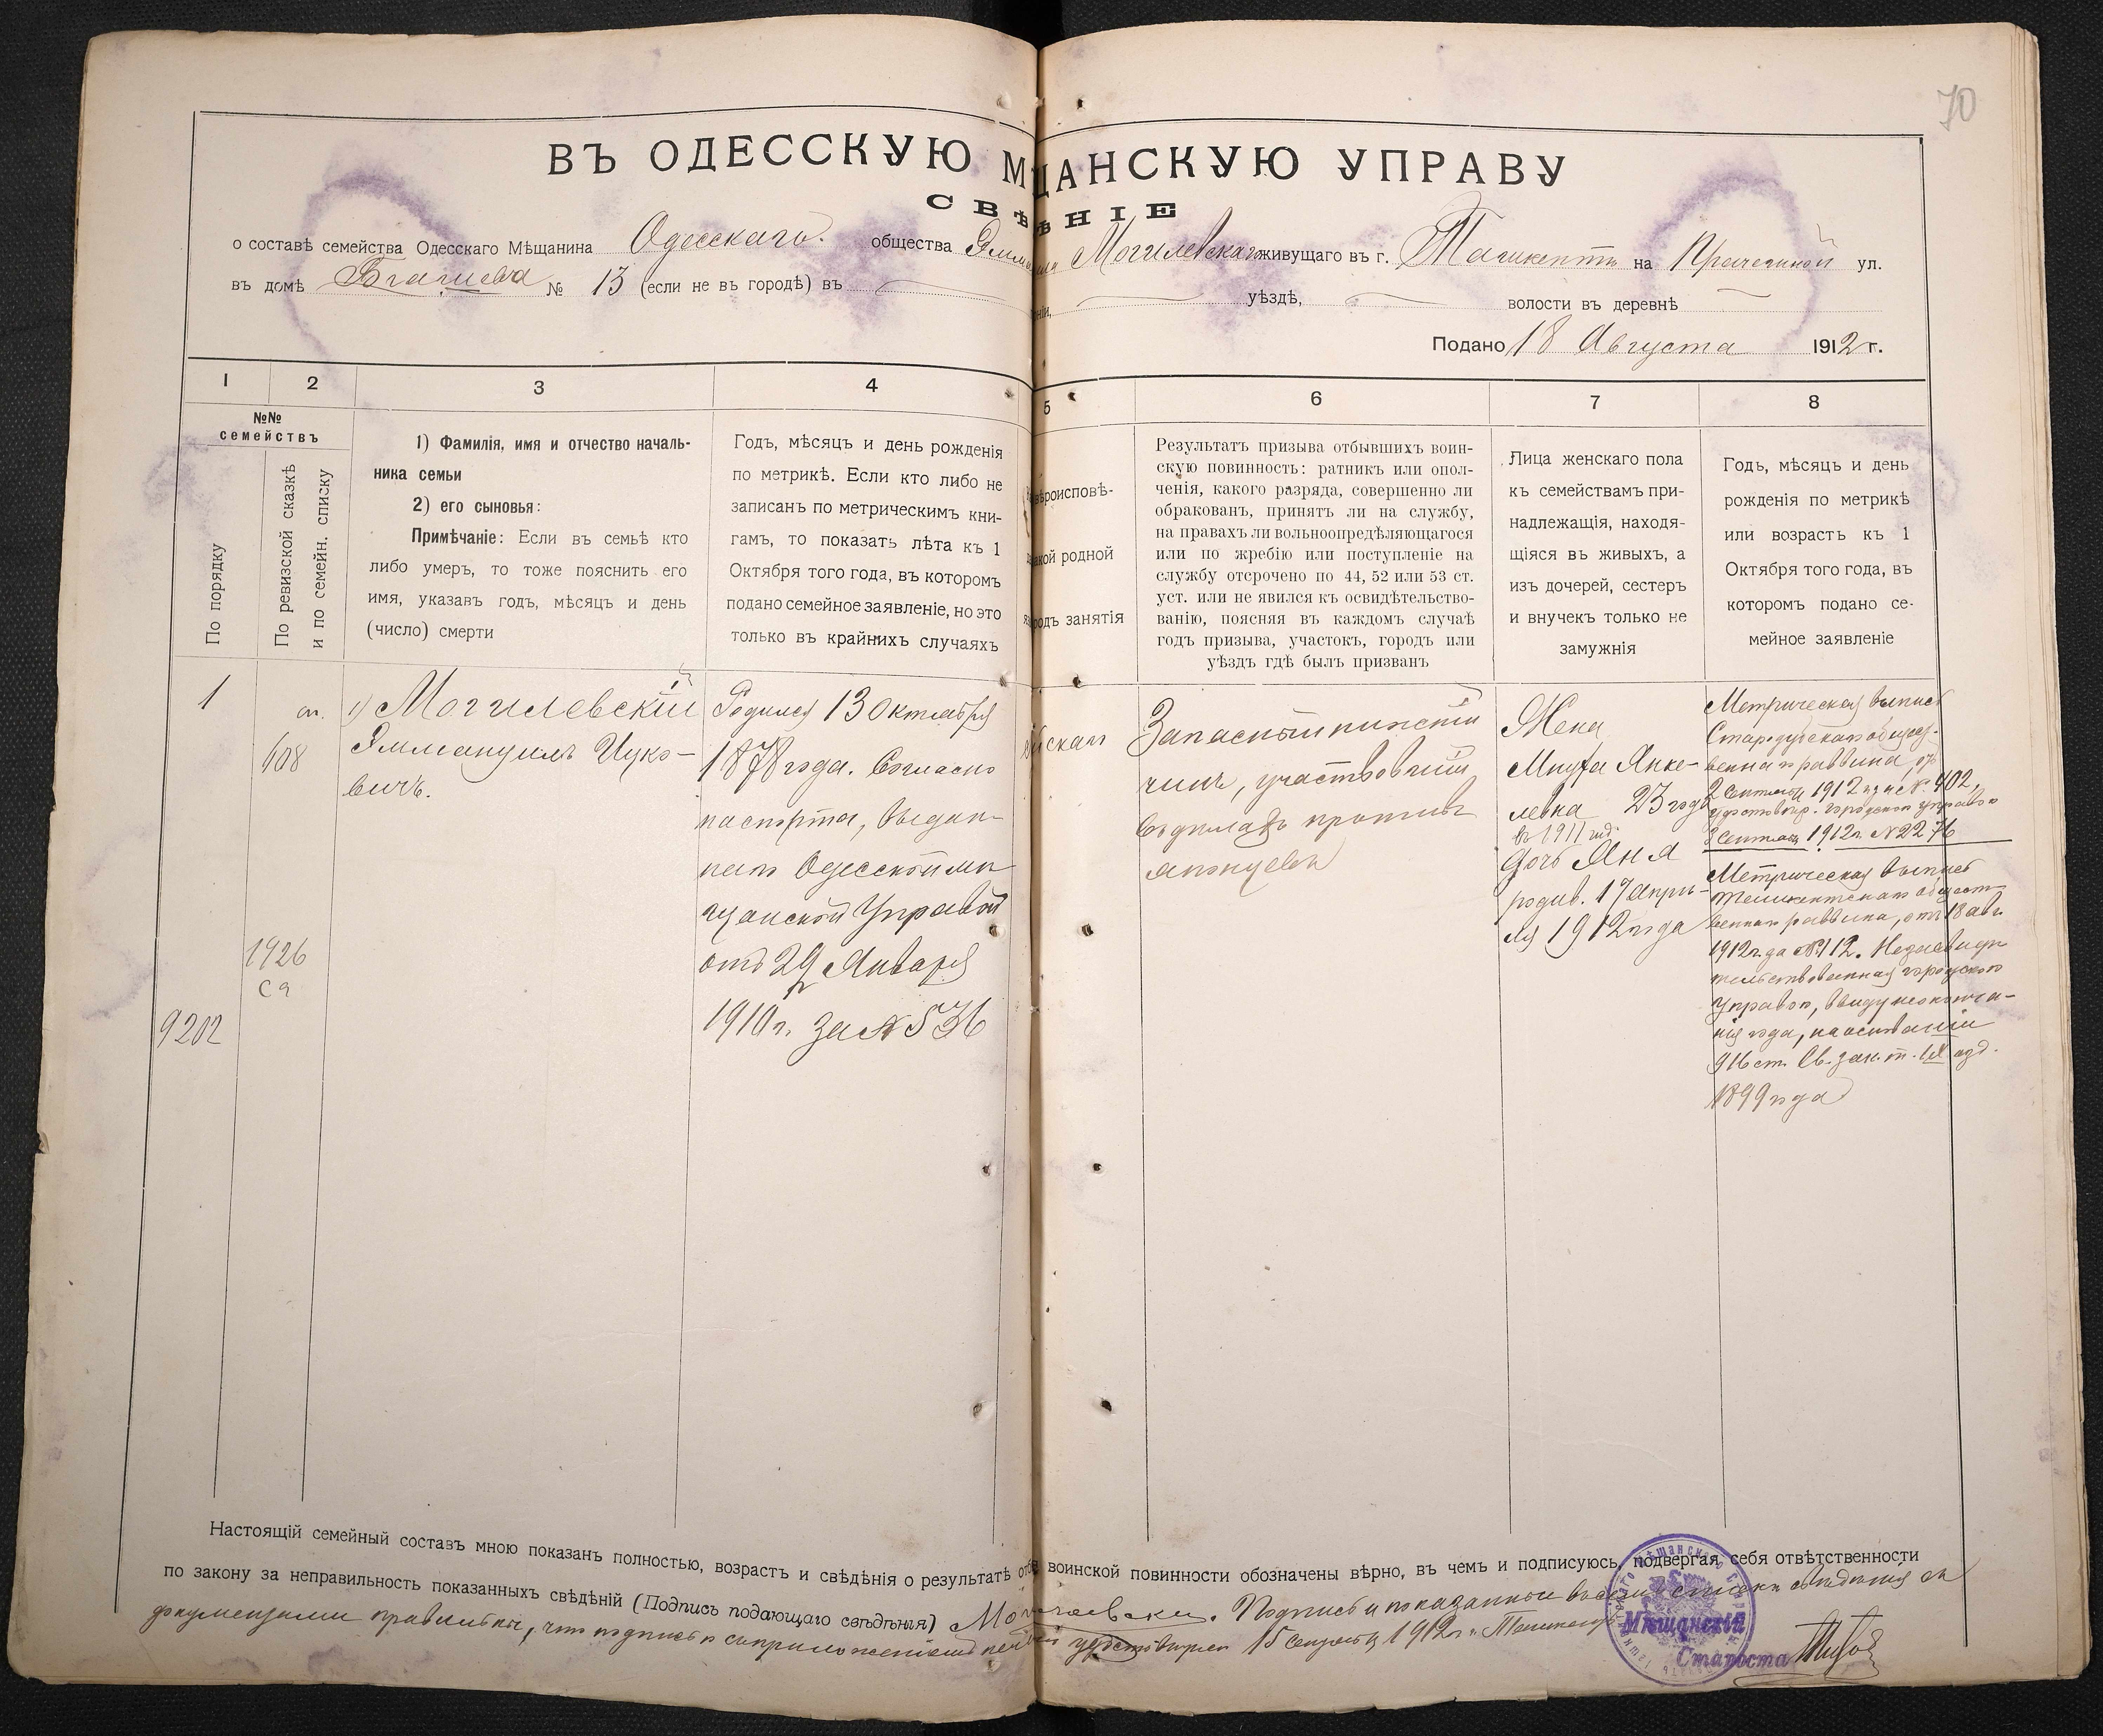 70
ВЪ ОДЕССКУЮ М ЩАНСКУЮ УПРАВУ
СВѢ ѢНІЕ
о составѣ семейства Одесскаго Мѣщанина Одесскаго. общества Эмма Могилевскаго живущаго въ г. Ташкентѣ на ул.
въ домѣ № 13 (если не въ городѣ) въ ніи, уѣздѣ, волости въ деревнѣ
Подано 18 Августа 1912 г.
1 2 3 4 5 6 7 8
№№
семействъ
По порядку
По ревизской сказкѣ
и по семейн. списку
1) Фамилія, имя и отчество началь-
ника семьи
2) его сыновья:
Примѣчаніе: Если въ семьѣ кто
либо умеръ, то тоже пояснить его
имя, указавъ годъ, мѣсяцъ и день
(число) смерти
Годъ, мѣсяцъ и день рожденія
по метрикѣ. Если кто либо не
записанъ по метрическимъ кни-
гамъ, то показать лѣта къ 1
Октября того года, въ которомъ
подано семейное заявленіе, но это
только въ крайнихъ случаяхъ
вѣроисповѣ-
акой родной
родъ занятія
Результатъ призыва отбывшихъ воин-
скую повинность: ратникъ или опол-
ченія, какого разряда, совершенно ли
обракованъ, принятъ ли на службу,
на правахъ ли вольноопредѣляющагося
или по жребію или поступленіе на
службу отсрочено по 44, 52 или 53 ст.
уст. или не явился къ освидѣтельство-
ванію, поясняя въ каждомъ случаѣ
годъ призыва, участокъ, городъ или
уѣздъ гдѣ былъ призванъ
Лица женскаго пола
къ семействамъ при-
надлежащія, находя-
щіяся въ живыхъ, а
изъ дочерей, сестеръ
и внучекъ только не
замужнія
Годъ, мѣсяцъ и день
рожденія по метрикѣ
или возрастъ къ 1
Октября того года, въ
которомъ подано се-
мейное заявленіе
1
сп.
608
1926
са
9202
1) Могилевскій
Эммануилъ Ицко-
вичъ.
Родился 13 Октября
1878 года. Согласно
паспорта, выдан-
наго Одесской мѣ-
щанской Управой
отъ 29 Января
1910 г. за № 536
йскаго
Запасной нижній
чинъ, участвовавшій
въ дѣлахъ противъ
японцевъ
Жена
Янке-
левна 23 года
въ 1911 год.
дочь Аня
родив. 17 апрѣ-
ля 1912 года
Метрическая выпись
Стародубскаго общест-
веннаго раввина, отъ
2 Сентября 1912 года № 402,
удостовѣр. городской управою
8 Сентяб. 1912 г. № 2276
Метрическая выпись
Ташкентскаго общест-
веннаго раввина, отъ 18 авг.
1912 года № 112. Незасвидѣ-
тельствованная городскою
управою, ввиду неоконча-
нія года, на основаніи
916 ст. Св. зак. т. IX изд.
1899 года
Настоящій семейный составъ мною показанъ полностью, возрастъ и свѣдѣнія о результатѣ отбы воинской повинности обозначены вѣрно, въ чемъ и подписуюсь, подвергая себя отвѣтственности
по закону за неправильность показанныхъ свѣдѣній (Подпись подающаго свѣдѣнія) Могилевскій. Подпись и показанные въ семъ спискѣ свѣдѣнія съ
документами правильны, что подписью съ приложеніемъ печати удостовѣряю 15 Сентября 1912 г. Ташкентъ
Мѣщанскій
Староста